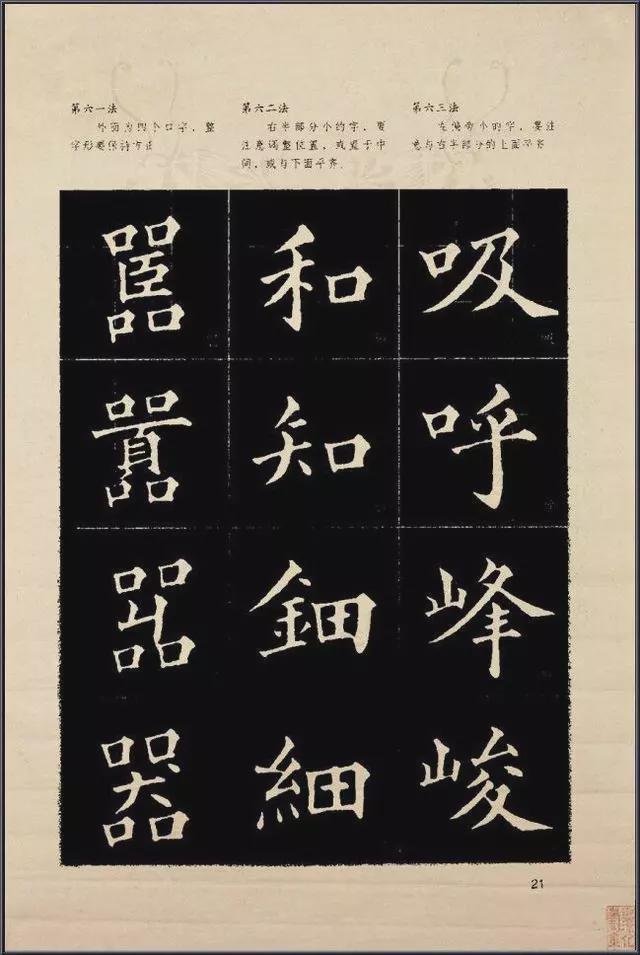 第六一法
外面为四个口字，整
字形要保持方正
第六二法
右半部分小的字，要
注意调整位置，或置于中
间，或与下面平齐．
第六三法
左偏旁小的字，要注
意与右半部分的上面平齐
嚚 和 吸
囂 知 呼
嘂 鈿 峰
器 細 峻
21